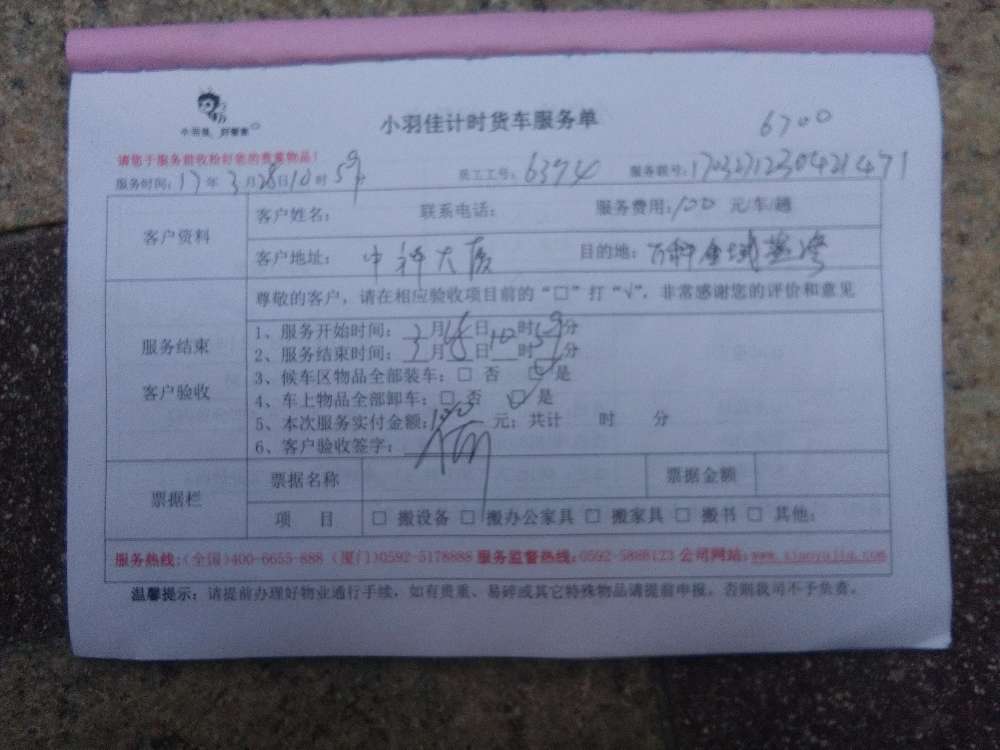 小羽佳计时货车服务单
6700
小羽佳 好管家
请您于服务前收检好您的贵重物品!
服务时间:17年3月28日10时59分 员工工号:6394 服务联号:170327123042
客户资料
客户姓名: 联系电话: 服务费用:100 元/车/趟
客户地址: 中科大厦 目的地:万科金域蓝湾
尊敬的客户,请在相应验收项目前的“□”打“√”,非常感谢您的评价和意见
服务结束
客户验收
1、服务开始时间:3月28日10时59分
2、服务结束时间:3月28日 时 分
3、候车区物品全部装车:□ 否 □ 是
4、车上物品全部卸车:□ 否 □ 是
5、本次服务实付金额:100 元;共计 时 分
6、客户验收签字:
票据栏
票据名称 票据金额
项 目 □ 搬设备 □ 搬办公家具 □ 搬家具 □ 搬书 □ 其他:
服务热线:(全国)400-6655-888 (厦门)0592-5178888 服务监督热线:0592-5888123 公司网站:www.xiaoyujia.com
温馨提示:请提前办理好物业通行手续,如有贵重、易碎或其它特殊物品请提前申报,否则我司不予负责。